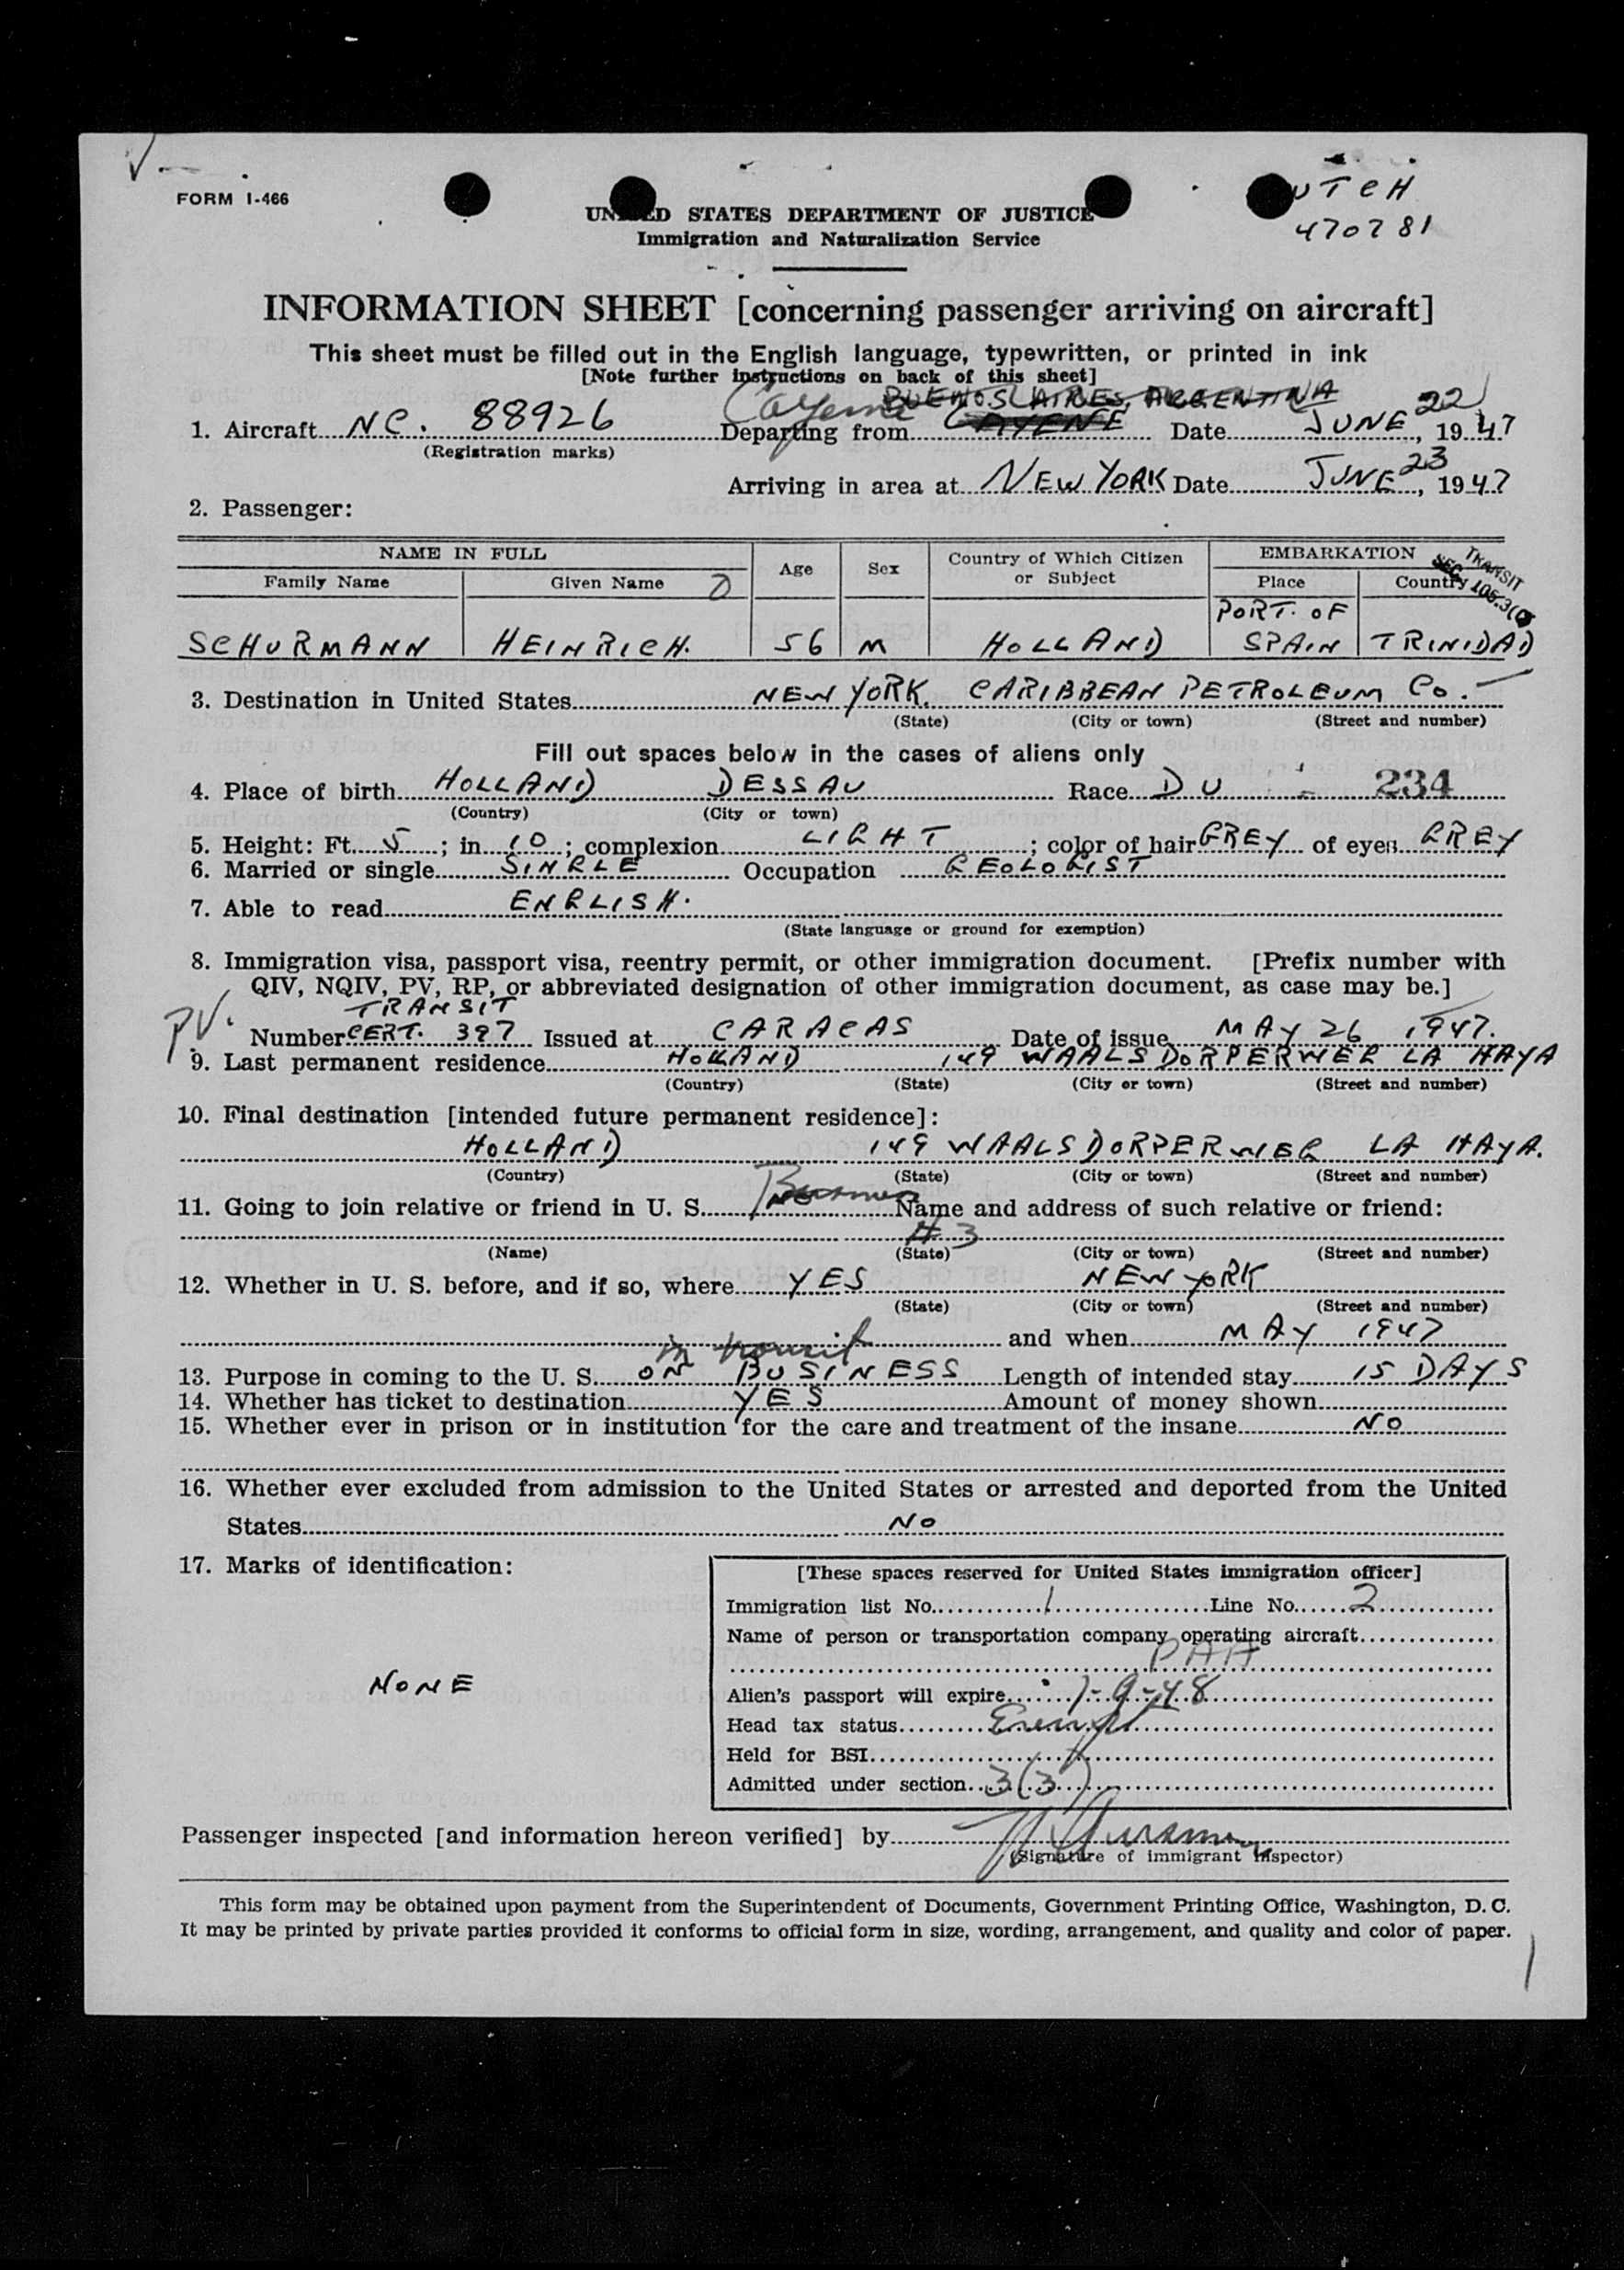 FORM I-466
UTCH
470781
UNITED STATES DEPARTMENT OF JUSTICE
Immigration and Naturalization Service
INFORMATION SHEET [concerning passenger arriving on aircraft]
This sheet must be filled out in the English language, typewritten, or printed in ink
[Note further instructions on back of this sheet]
BUENOS AIRES, ARGENTINA
Cayenne
1. Aircraft NC. 88926 Departing from CAYENE Date JUNE 22, 1947
(Registration marks)
Arriving in area at NEW YORK Date JUNE 23, 1947
2. Passenger:
NAME IN FULL Age Sex Country of Which Citizen or Subject EMBARKATION
Family Name Given Name Place Country
TRANSIT
SEC. 105.3(
PORT. OF
SCHURMANN HEINRICH. 56 M HOLLAND SPAIN TRINIDAD
3. Destination in United States NEW YORK. CARIBBEAN PETROLEUM Co.
(State) (City or town) (Street and number)
Fill out spaces below in the cases of aliens only
4. Place of birth HOLLAND DESSAU Race DU 234
(Country) (City or town)
5. Height: Ft. 5; in. 10; complexion LIGHT; color of hair GREY of eyes GREY
6. Married or single SINGLE Occupation GEOLOGIST
7. Able to read ENGLISH.
(State language or ground for exemption)
8. Immigration visa, passport visa, reentry permit, or other immigration document. [Prefix number with
QIV, NQIV, PV, RP, or abbreviated designation of other immigration document, as case may be.]
TRANSIT
PV. Number CERT. 397 Issued at CARACAS Date of issue MAY 26 1947.
9. Last permanent residence HOLLAND 149 WAALSDORPERWEG LA HAYA
(Country) (State) (City or town) (Street and number)
10. Final destination [intended future permanent residence]:
HOLLAND 149 WAALSDORPERWEG LA HAYA.
(Country) (State) (City or town) (Street and number)
11. Going to join relative or friend in U. S. NO Business Name and address of such relative or friend:
# 3
(Name) (State) (City or town) (Street and number)
12. Whether in U. S. before, and if so, where YES NEW YORK
(State) (City or town) (Street and number)
and when MAY 1947
in transit
13. Purpose in coming to the U. S. ON BUSINESS Length of intended stay 15 DAYS
14. Whether has ticket to destination YES Amount of money shown
15. Whether ever in prison or in institution for the care and treatment of the insane NO
16. Whether ever excluded from admission to the United States or arrested and deported from the United
States NO
17. Marks of identification:
NONE
[These spaces reserved for United States immigration officer]
Immigration list No. 1 Line No. 2
Name of person or transportation company operating aircraft
PAA
Alien's passport will expire 1-9-48
Head tax status Exempt
Held for BSI
Admitted under section 3(3)
Passenger inspected [and information hereon verified] by
(Signature of immigrant inspector)
This form may be obtained upon payment from the Superintendent of Documents, Government Printing Office, Washington, D. C.
It may be printed by private parties provided it conforms to official form in size, wording, arrangement, and quality and color of paper.